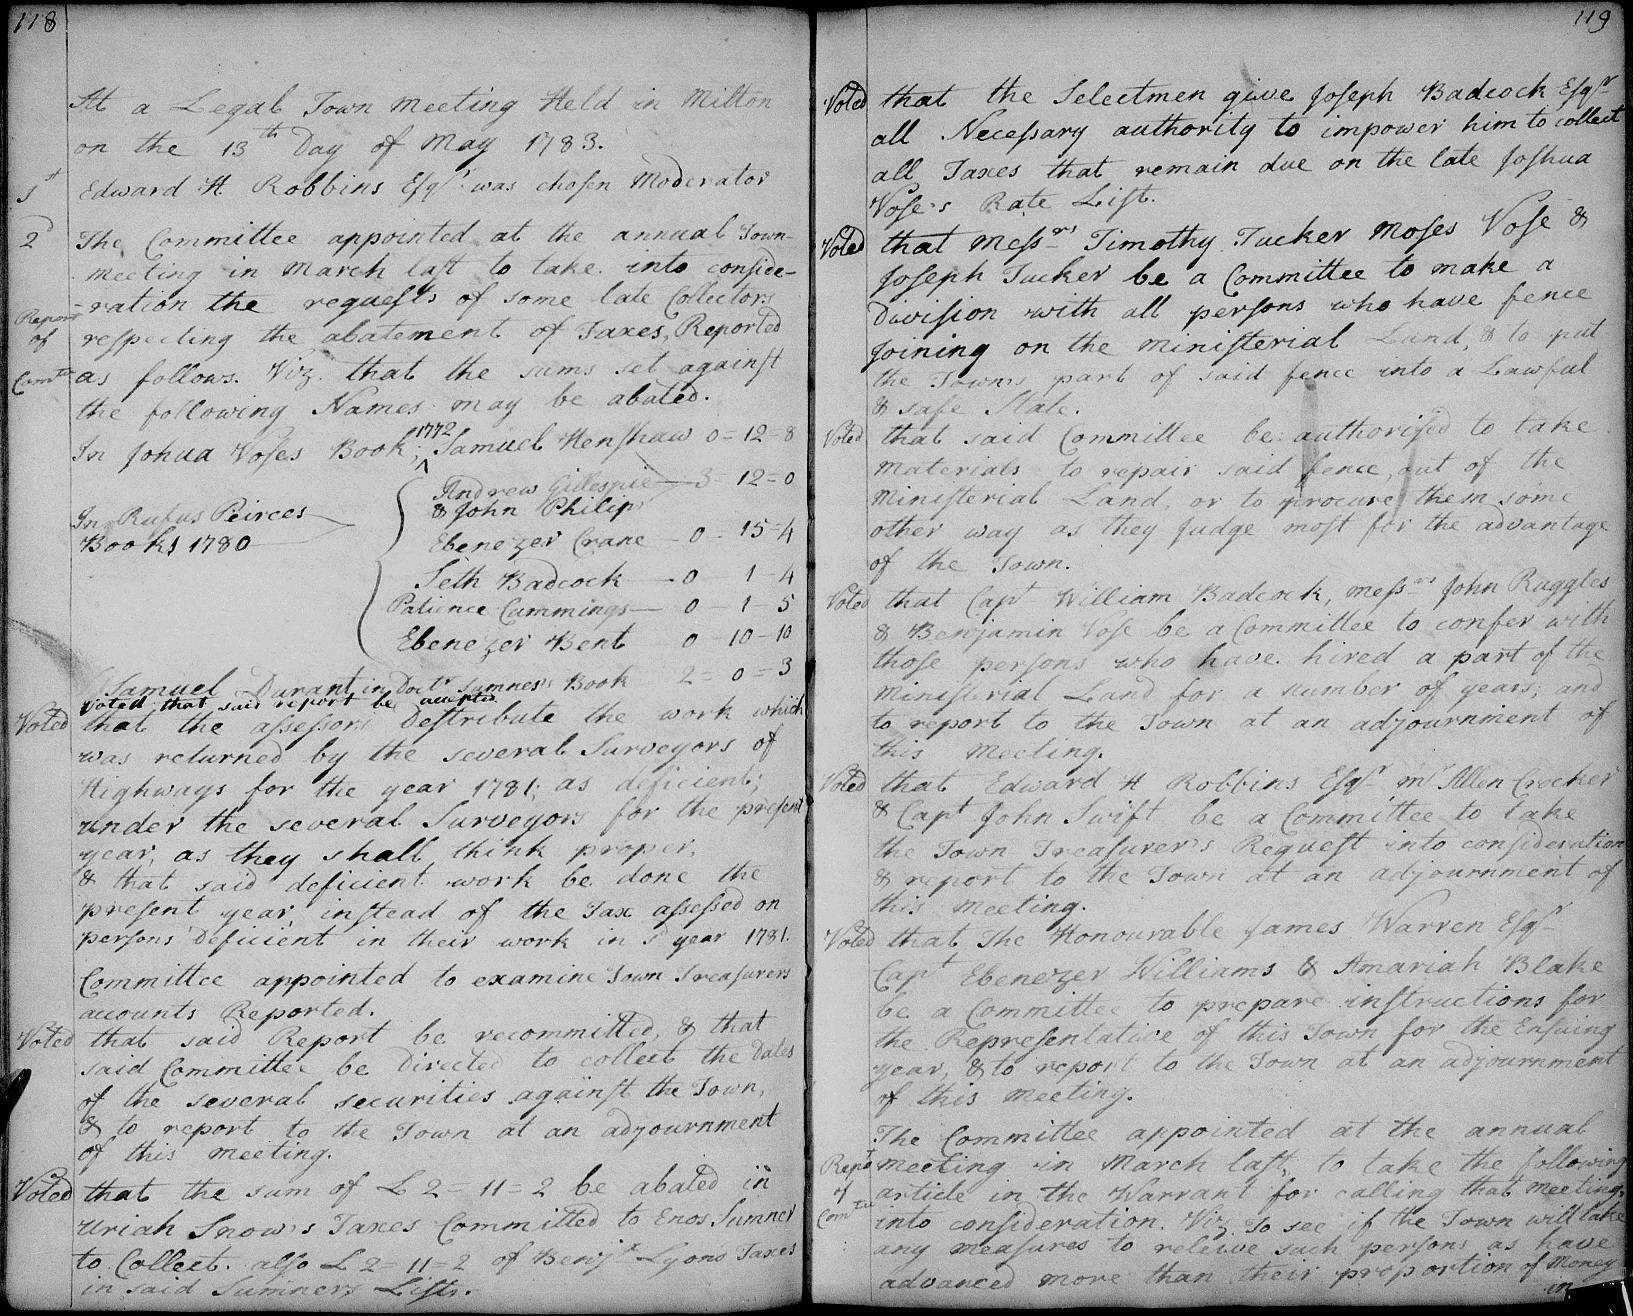 118
At a Legal Town meeting Held in Milton
on the 13th Day of May 1783.
1st Edward H Robbins Esqr was chosen Moderator
2d The Committee appointed at the annual Town
meeting in March last to take into conside-
-ration the requests of some late Collectors
Report of Comtee
respecting the abatement of Taxes, Reported
as follows. Viz. that the sums set against
the following Names may be abated.
In Johua Voses Book, 1772 Samuel Henshaw 0=12=8
In Rufus Peirces Books 1780
Andrew Gillespie & John Philips 3-12=0
Ebenezer Crane - 0-15=4
Seth Badcock - 0 1-4
Patience Cummings - 0-1-5
Ebenezer Bent 0-10-10
Samuel Durant in Doctr Sumners Book 2=0=3
Voted that said report be accepted
Voted that the assessors destribute the work which
was returned by the several Surveyors of
Highways for the year 1781, as deficient;
under the several Surveyors for the present
year, as they shall think proper,
& that said deficient work be done the
present year, instead of the Tax assessed on
persons Deficient in their work in sd year 1781.
Committee appointed to examine Town Treasurers
accounts Reported.
Voted that said Report be recommitted, & that
said Committee be Directed to collect the Dates
of the several securities against the Town,
& to report to the Town at an adjournment
of this meeting.
Voted that the sum of L 2=11=2 be abated in
Uriah Snow's Taxes Committed to Enos Sumner
to Collect. also L 2=11=2 of Benjn Lyons Taxes
in said Sumners Lists.
119
Voted that the Selectmen give Joseph Badcock Esqr
all Necessary authority to impower him to collect
all Taxes that remain due on the late Joshua
Vose's Rate List.
Voted that Messrs Timothy Tucker Moses Vose &
Joseph Tucker be a Committee to make a
Division with all persons who have fence
Joining on the ministerial Land, & to put
the Towns part of said fence into a Lawful
& safe State.
Voted that said Committee be authorised to take
materials to repair said fence, out of the
Ministerial Land, or to procure them some
other way as they Judge most for the advantage
of the Town.
Voted that Capt William Badcock, messrs John Ruggles
& Benjamin Vose be a Committee to confer with
those persons who have hired a part of the
Ministerial Land for a number of years; and
to report to the Town at an adjournment of
this meeting.
Voted that Edward H Robbins Esqr mr Allen Crocker
& Capt John Swift be a Committee to take
the Town Treasurer's Request into consideration
& report to the Town at an adjournment of
this meeting.
Voted that The Honourable James Warren Esqr
Capt Ebenezer Williams & Amariah Blake
be a Committee to prepare instructions for
the Representative of this Town for the Ensuing
year, & to report to the Town at an adjournment
of this meeting.
The Committee appointed at the annual
Rept of Comtee
meeting in March last, to take the following
article in the Warrant for calling that meeting,
into consideration. Viz. To see if the Town will take
any measures to releive such persons as have
advanced more than their proportion of Money
in